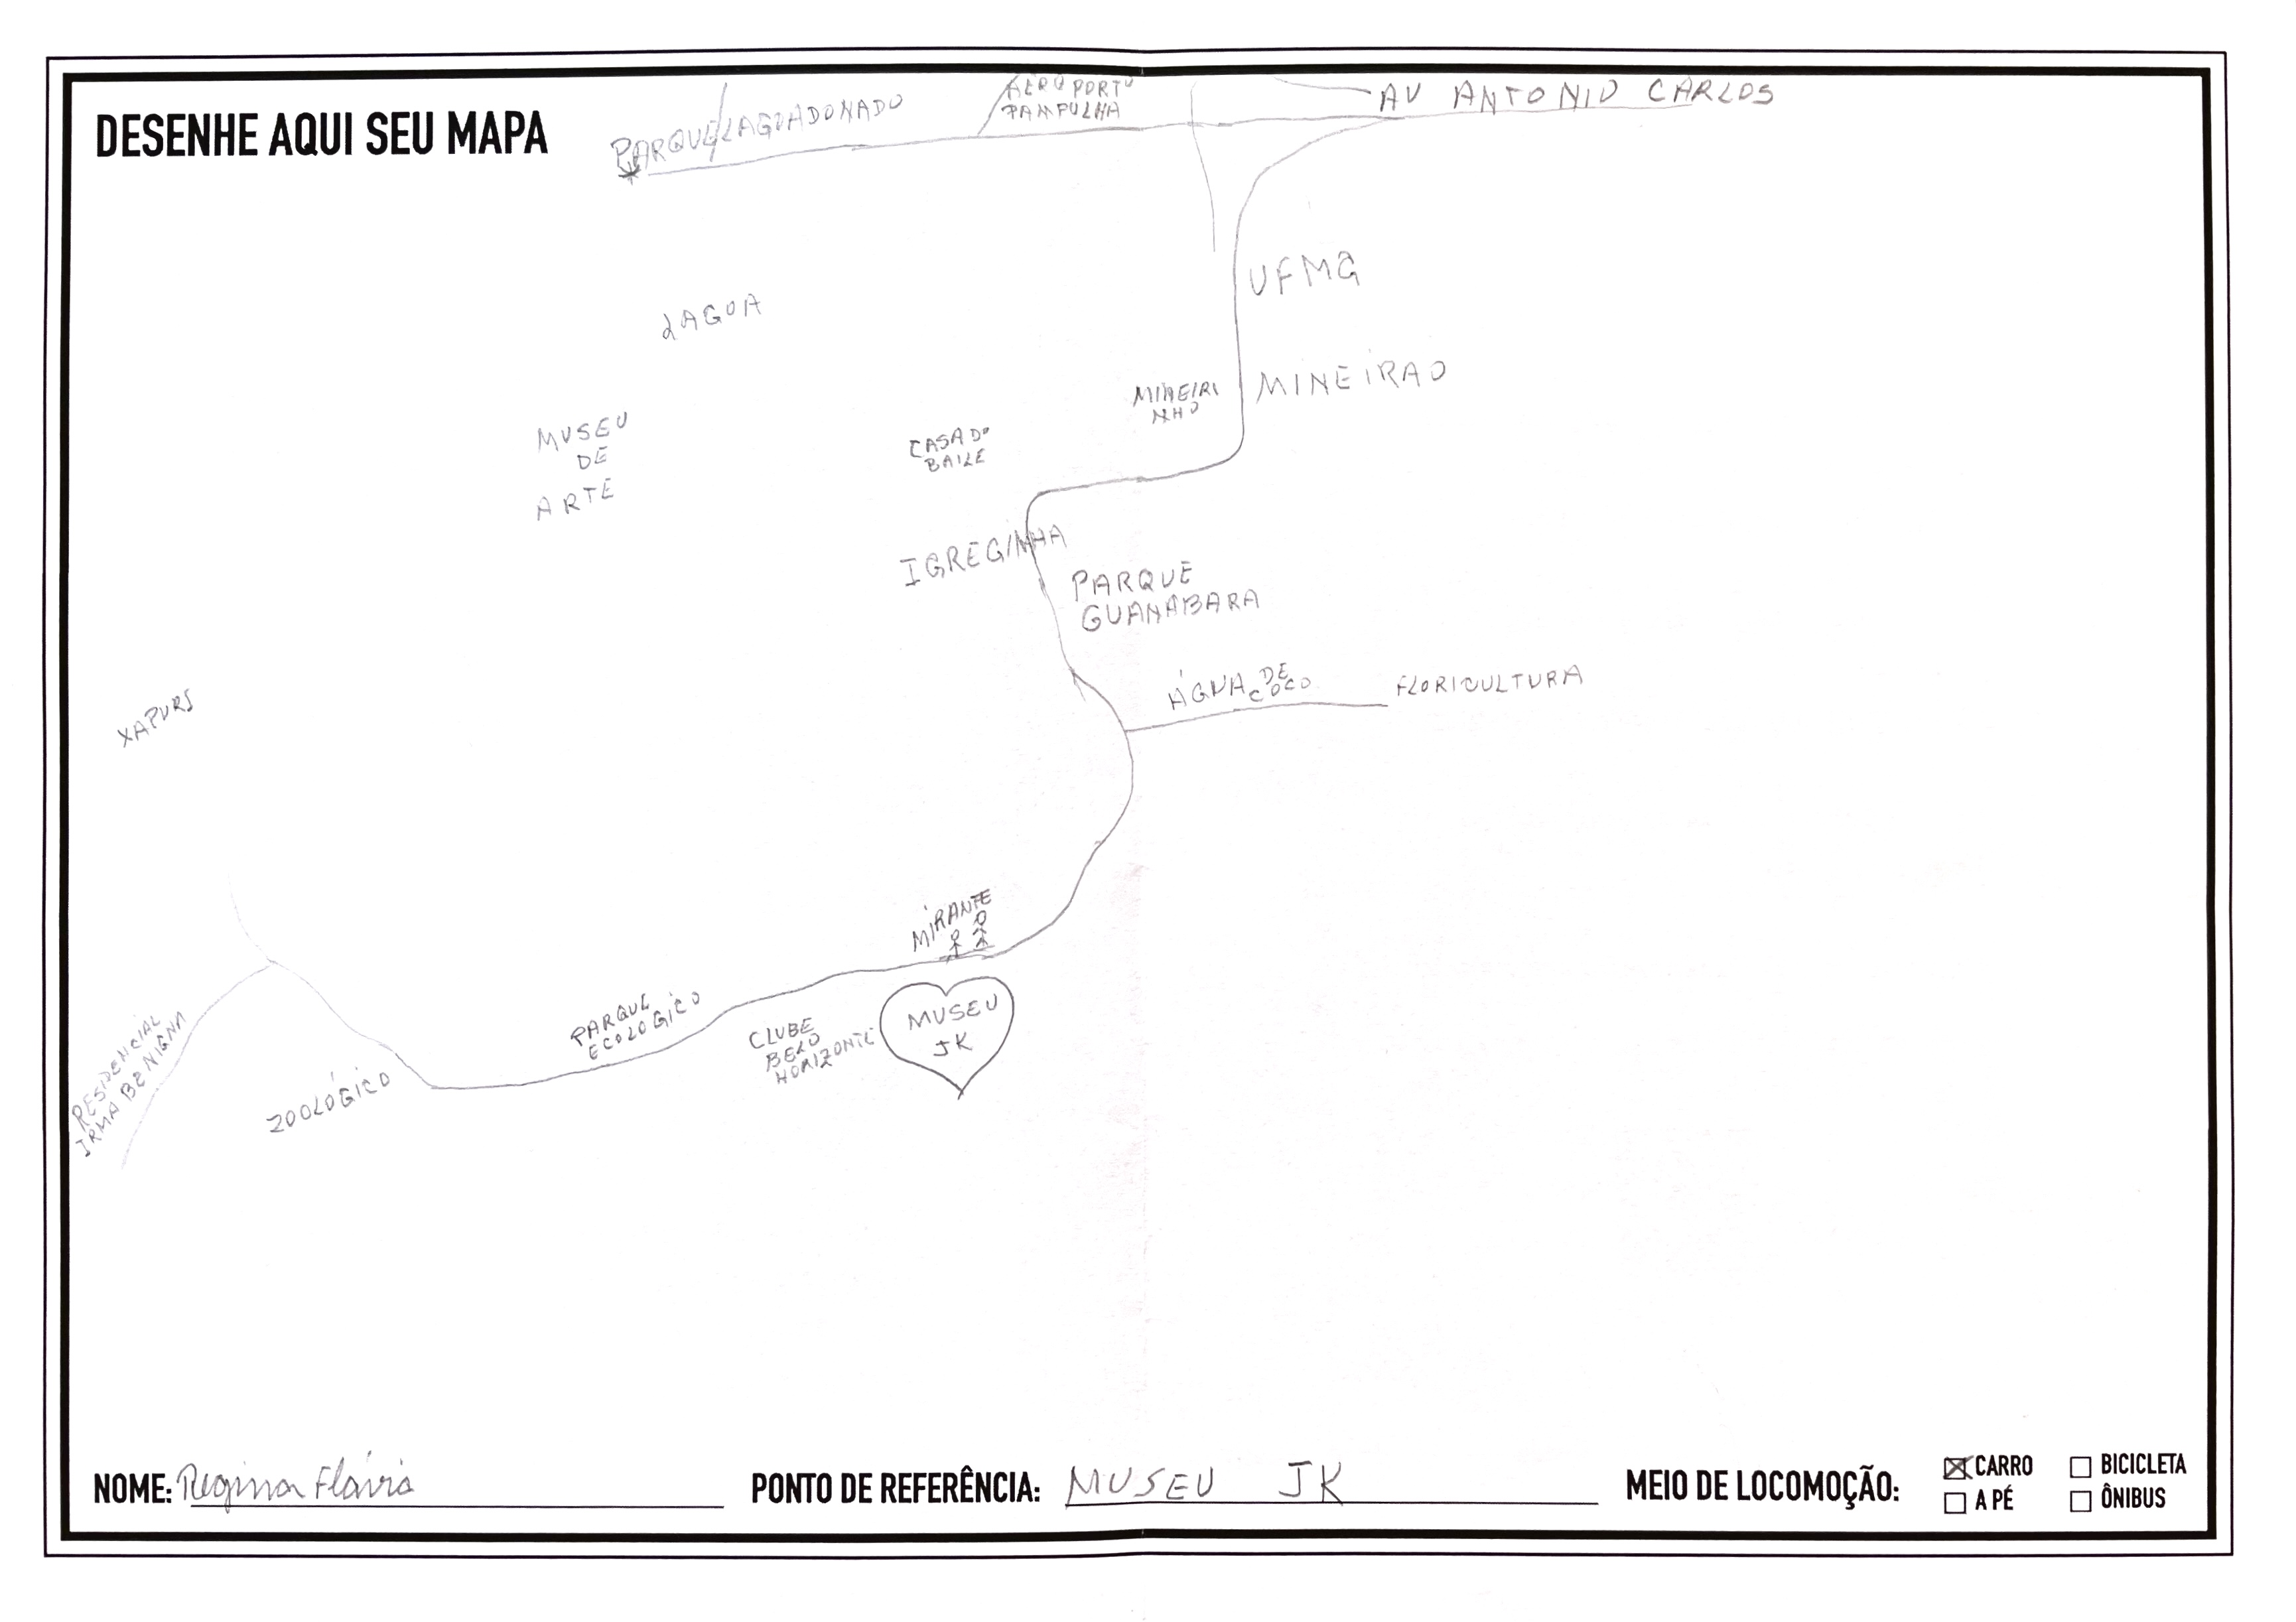 DESENHE AQUI SEU MAPA
PARQUE LAGOA DO NADO
AEROPORTO
PAMPULHA
AV ANTONIO CARLOS
UFMG
LAGOA
MINEIRI
NHO
MINEIRAO
MUSEU
DE
ARTE
CASA DO
BAILE
IGREGINHA
PARQUE
GUANABARA
ÁGUA DE
COCO
FLORICULTURA
XAPURS
MIRANTE
MUSEU
JK
PARQUE
ECOLOGICO
CLUBE
BELO
HORIZONTE
ZOOLÓGICO
RESIDENCIAL
IRMA BENIGNA
NOME: Regina Flávia
PONTO DE REFERÊNCIA: MUSEU JK
MEIO DE LOCOMOÇÃO:
CARRO
BICICLETA
A PÉ
ÔNIBUS